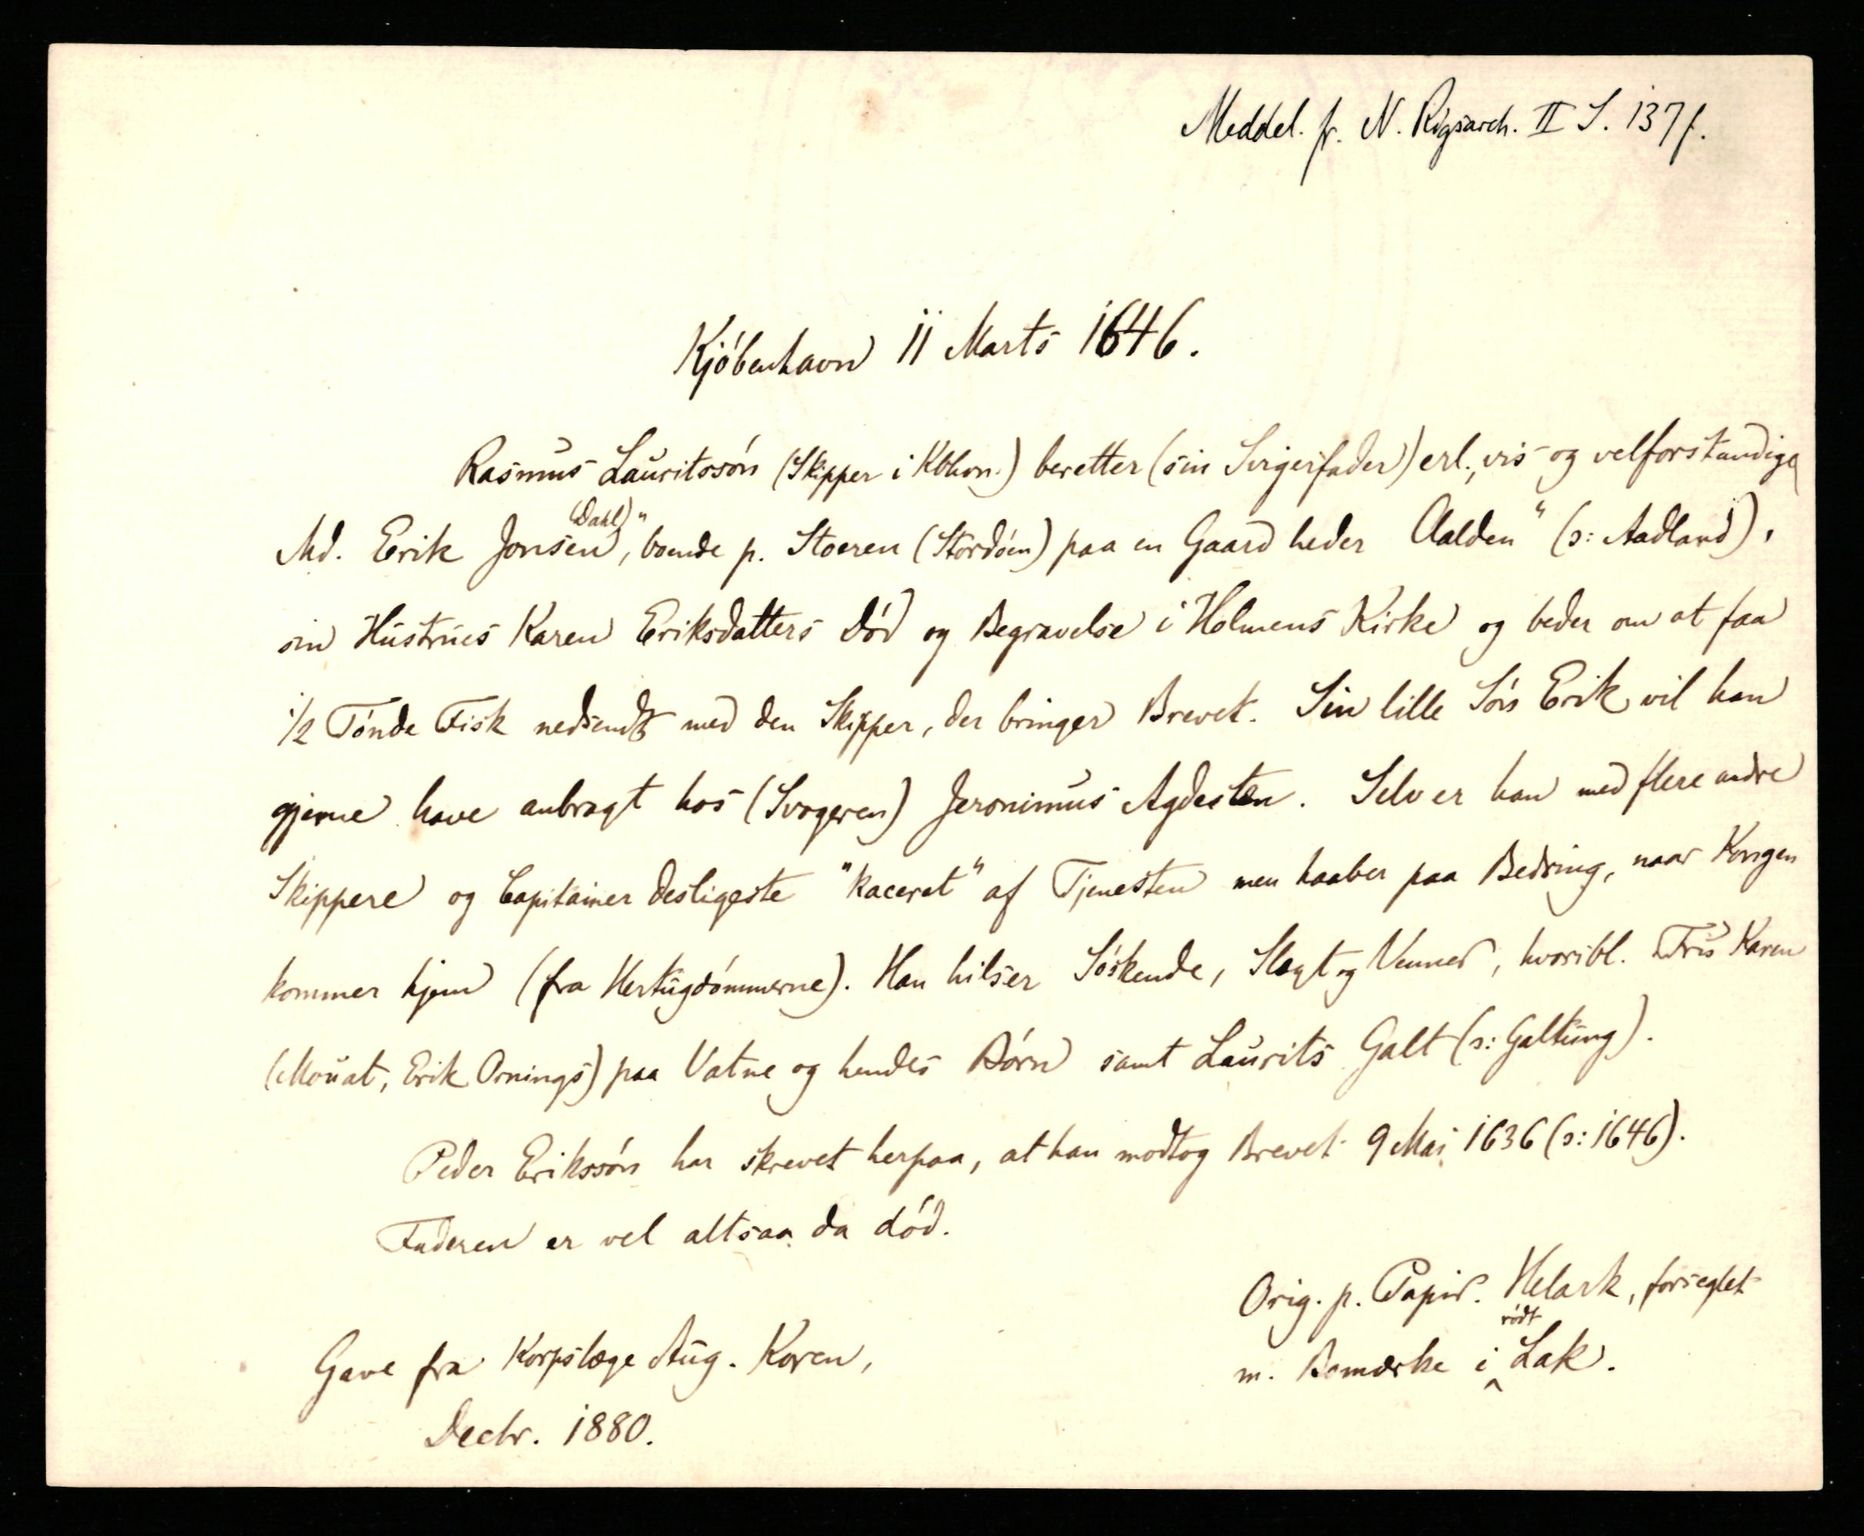 Meddel. fr. N. Rigsarch. II S. 137 f.
Kjóbenhavn 11 Marts 1646.
Rasmus Lauritssón (Skipper i Kbhvn.) beretter (sin Svigerfader) erl., vis og velforstandige
Md. Erik Jonsen (Dahl), "boende p. Stoeren (Stordóen) paa en Gaard heder Aalden" (ɔ: Aadland),
sin Hustrues Karen Eriksdatters Dód og Begravelse i Holmens Kirke og beder om at faa
1/2 Tónde Fisk nedsendt med den Skipper, der bringer Brevet. Sin lille Són Erik vil han
gjerne have anbragt hos (Svogeren) Jeronimus Agdesten. Selv er han med flere andre
Skippere og Capitainer desligeste "kaceret" af Tjenesten men haaber paa Bedring, naar Kongen
kommer hjem (fra Hertugdómmerne). Han hilser Sóskende, Slægt og Venner, hvoribl. Fru Karen
(Mouat, Erik Ornings) paa Vatne og hendes Bórn samt Laurits Galt (ɔ: Galtung).
Peder Erikssón har skrevet herpaa, at han modtog Brevet 9 Mai 1636 (ɔ: 1646).
Faderen er vel altsaa da dód.
Orig. p. Papir. Helark, forseglet
m. Bomærke i ródt Lak.
Gave fra Korpslæge Aug. Koren,
Decbr. 1880.